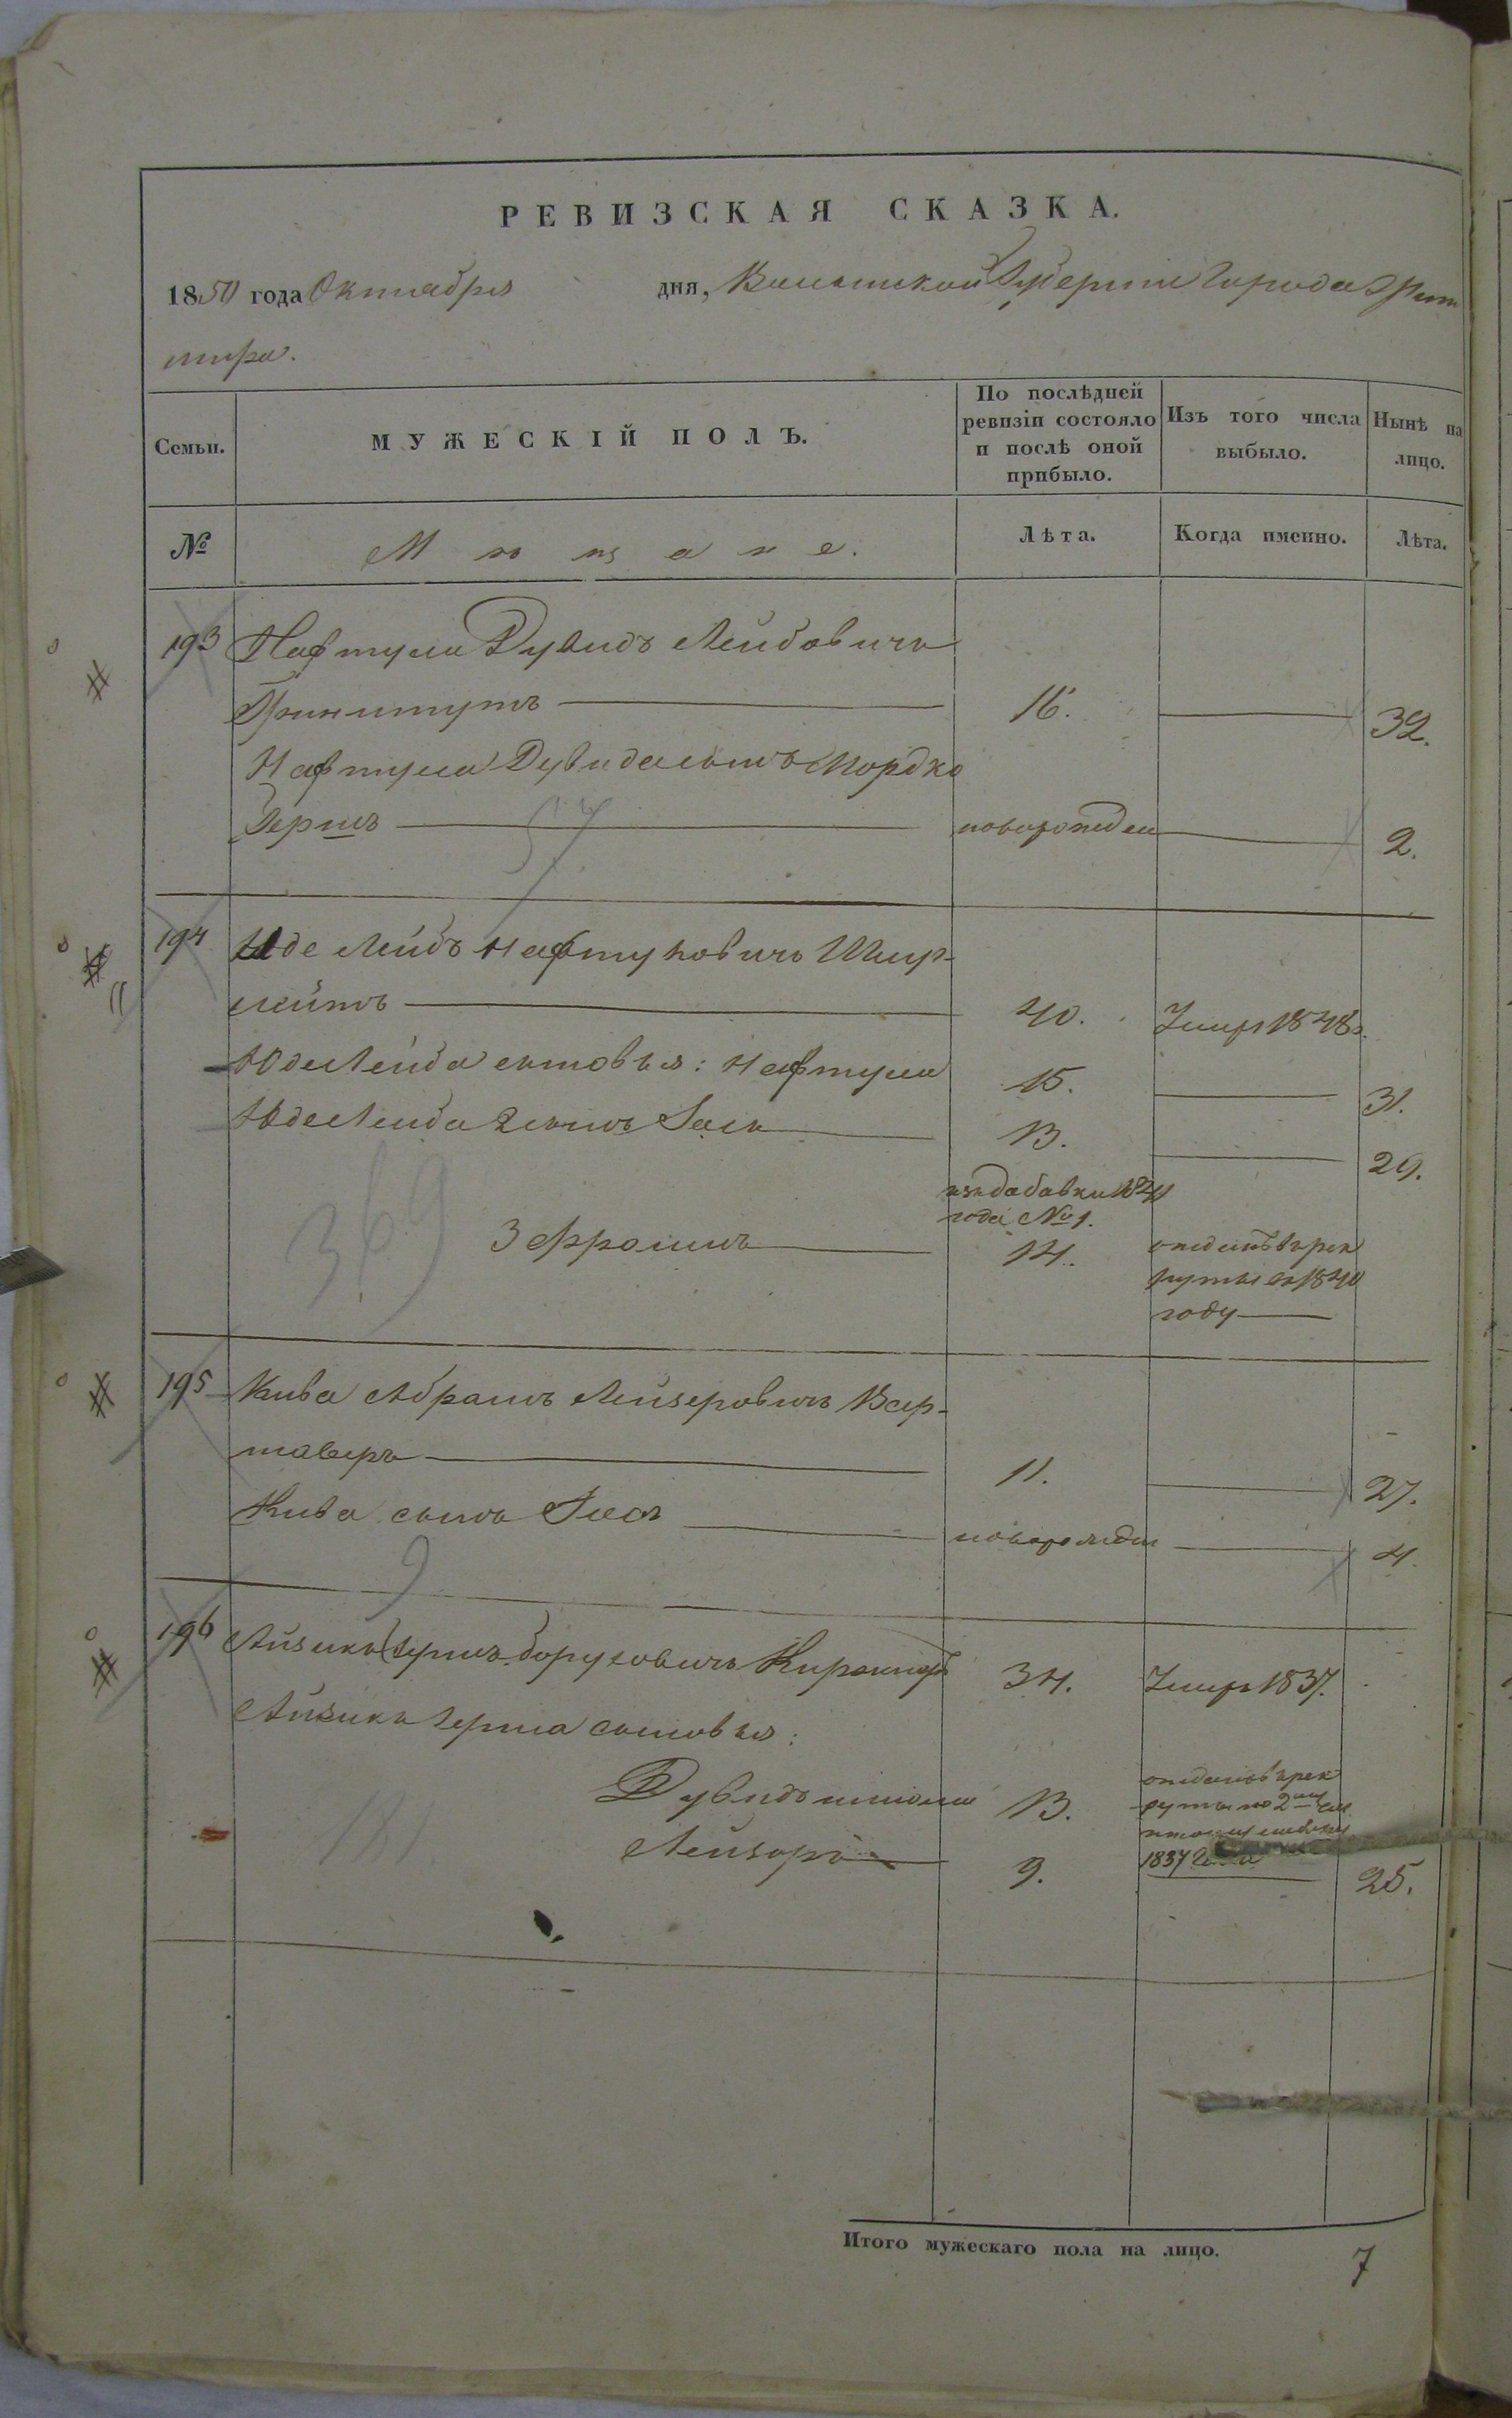 РЕВИЗСКАЯ СКАЗКА.
1850 года Октября дня, Волынской Губернии Города Жито
мира.
Семьи.
МУЖЕСКІЙ ПОЛЪ.
По послѣдней ревизіи состояло и послѣ оной прибыло.
Изъ того числа выбыло.
Нынѣ на лицо.
№
Мѣщане.
Лѣта.
Когда именно.
Лѣта.
193 Нафтула Дувидъ Лейбовичъ
16. 32.
Нафтула Дувида сынъ Мордко
Гершъ новорожден 2.
57
194 Юде Лейбъ Нафтулович Шмур-
40. Умеръ 1848
Юде Лейба сыновья: Нафтула 15. 31.
Юде Лейба 2 сынъ 13. 29.
изъ добавки 1841
года № 1.
3 Фроимъ 14. отданъ в рек
руты въ 1840
году
369
195 Кива Абрамъ Лейзеровичъ Вар-
шаверъ 11. 27.
Кива сынъ новорожден 4.
9
196 Айзикъ Гершъ Боруховичъ 34. Умеръ 1837.
Айзика Герша сыновья:
Дувидъ 13. отданъ в рек
руты по 2му
1837 года
Лейзоръ 9. 25.
181
Итого мужескаго пола на лицо. 7